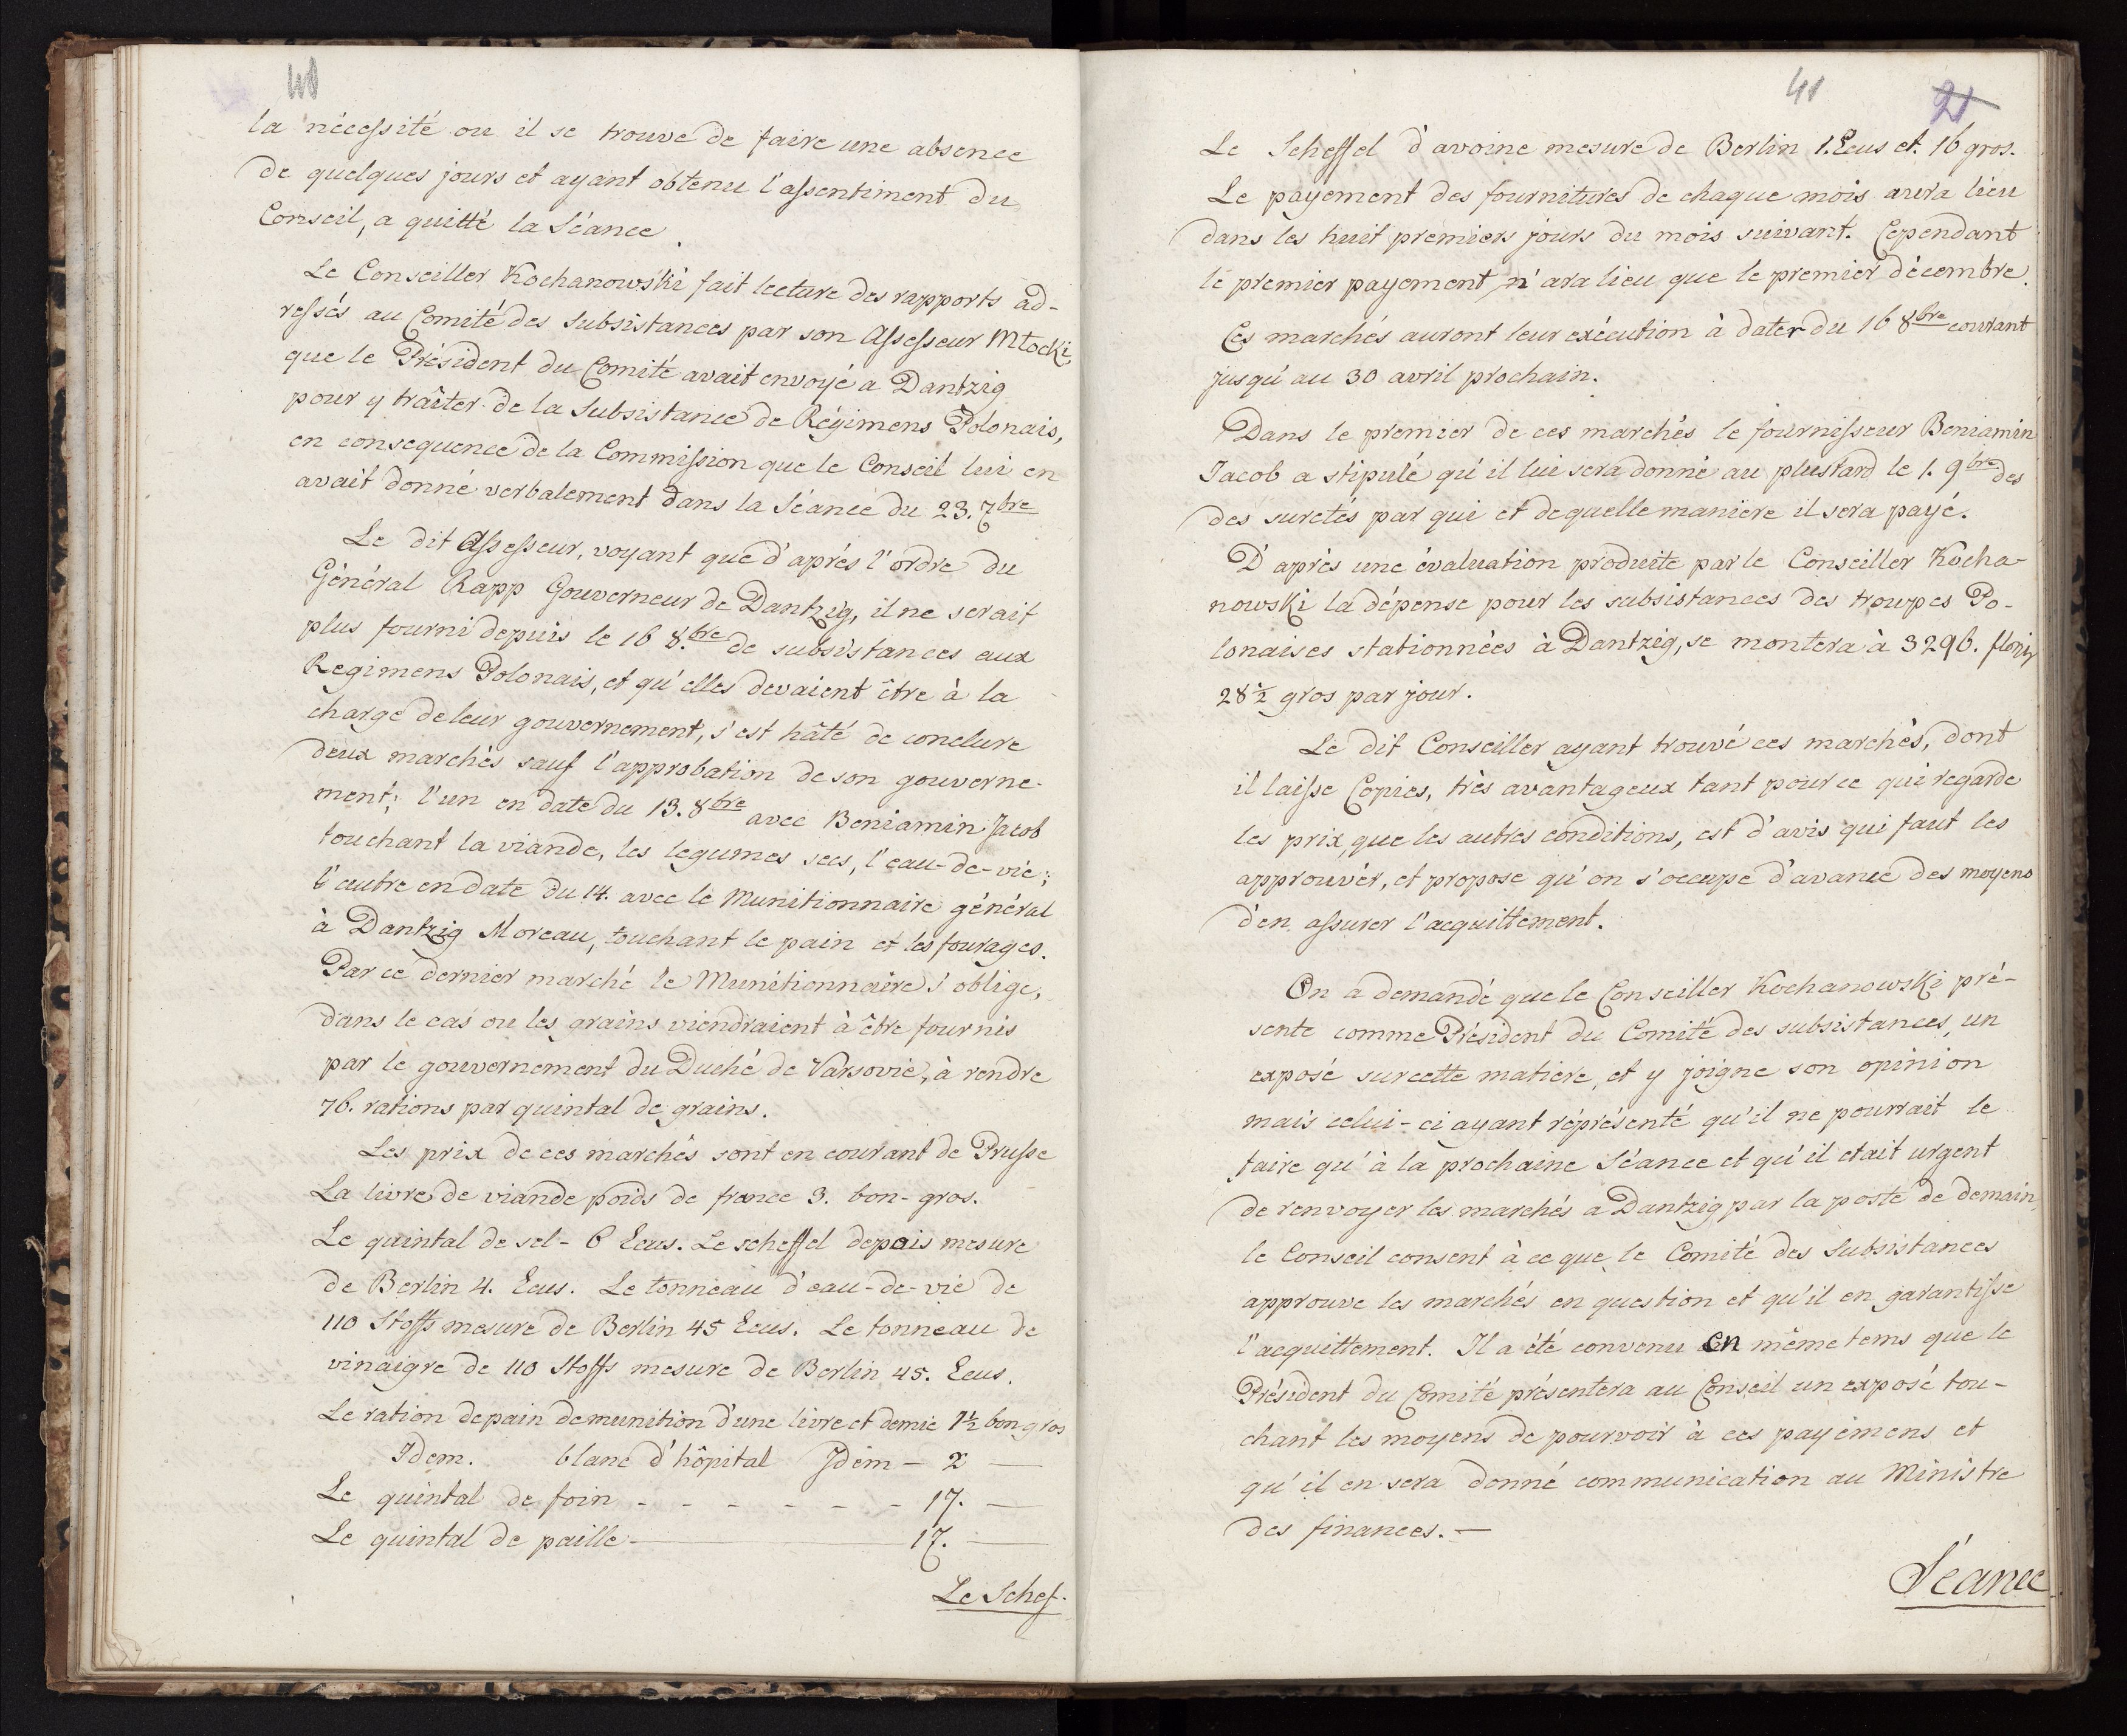 40
la nécessité ou il se trouve de faire une absence
de quelques jours et ayant obtenu l'assentiment du
Conseil, a quitté la Séance.
Le Conseiller Kochanowski fait lecture des rapports ad-
ressés au Comité des Subsistances par son Assesseur Młocki,
que le Président du Comité avait envoyé a Dantzig
pour y traîter de la Subsistance de Régimens Polonais,
en consequence de la Commission que le Conseil lui en
avait donné verbalement dans la Séance du 23. 7bre
Le dit Assesseur, voyant que d'aprés l'ordre du
Général Rapp Gouverneur de Dantzig, il ne serait
plus fourni depuis le 16 8.bre de subsistances aux
Regimens Polonais, et qu'elles devaient être à la
charge de leur gouvernement, s'est hâté de conclure
deux marchés sauf l'approbation de son gouverne-
ment; l'un en date du 13. 8bre avec Beniamin Jacob
touchant la viande, les legumes secs, l'eau-de-vie;
l'autre en date du 14. avec le Munitionnaire général
à Dantzig Moreau, touchant le pain et les fourages.
Par ce dernier marché le Munitionnaire s'oblige,
dans le cas ou les grains viendraient à être fournis
par le gouvernement du Duché de Varsovie, à rendre
76. rations par quintal de grains.
Les prix de ces marchés sont en courant de Prusse
La livre de viande poids de france 3. bon-gros.
Le quintal de sel - 6 Ecus. Le scheffel de pois mesure
de Berlin 4. Ecus. Le tonneau d'eau-de-vie de
110 Stoffs mesure de Berlin 45 Ecus. Le tonneau de
vinaigre de 110 Stoffs mesure de Berlin 45. Ecus.
Le ration de pain de munition d'une livre et demie 1½ bon gros
Idem. blanc d'hôpital Idem - 2 —
Le quintal de foin - - - - - - 17. —
Le quintal de paille — 17. —
Le Schef.
41
21
Le Scheffel d'avoine mesure de Berlin 1. Ecus et 16 gros.
Le payement des fournitures de chaque mois aura lieu
dans les huit premiers jours du mois suivant. Cependant
le premier payement n'ara lieu que le premier décembre.
Ces marchés auront leur exécution à dater du 16 8bre courant
jusqu'au 30 avril prochain.
Dans le premier de ces marchés le fournisseur Beniamin
Jacob a stipulé qu'il lui sera donné au plustard le 1. 9bre des
des suretés par qui et de quelle maniere il sera payé.
D'aprés une évaluation produite par le Conseiller Kocha-
nowski la dépense pour les subsistances des troupes Po-
lonaises stationnées à Dantzig, se montera à 3296. florin
28½ gros par jour.
Le dit Conseiller ayant trouvé ces marchés, dont
il laisse Copies, très avantageux tant pour ce qui regarde
les prix, que les autres conditions, est d'avis qui faut les
approuvér, et propose qu'on s'occupe d'avance des moyens
d'en assurer l'acquittement.
On a demandé que le Conseiller Kochanowski pré-
sente comme Président du Comité des subsistances, un
exposé sur cette matiere, et y joigne son opinion
mais celui-ci ayant réprésenté qu'il ne pourrait le
faire qu'à la prochaine Séance et qu'il etait urgent
de renvoyer les marchés a Dantzig par la poste de demain,
le Conseil consent à ce que le Comité des Subsistances
approuve les marchés en question et qu'il en garantisse
l'acquittement. Il a été convenu en même tems que le
Président du Comité présentera au Conseil un exposé tou-
chant les moyens de pourvoir à ces payémens et
qu'il en sera donné communication au Ministre
des finances. —
Séance